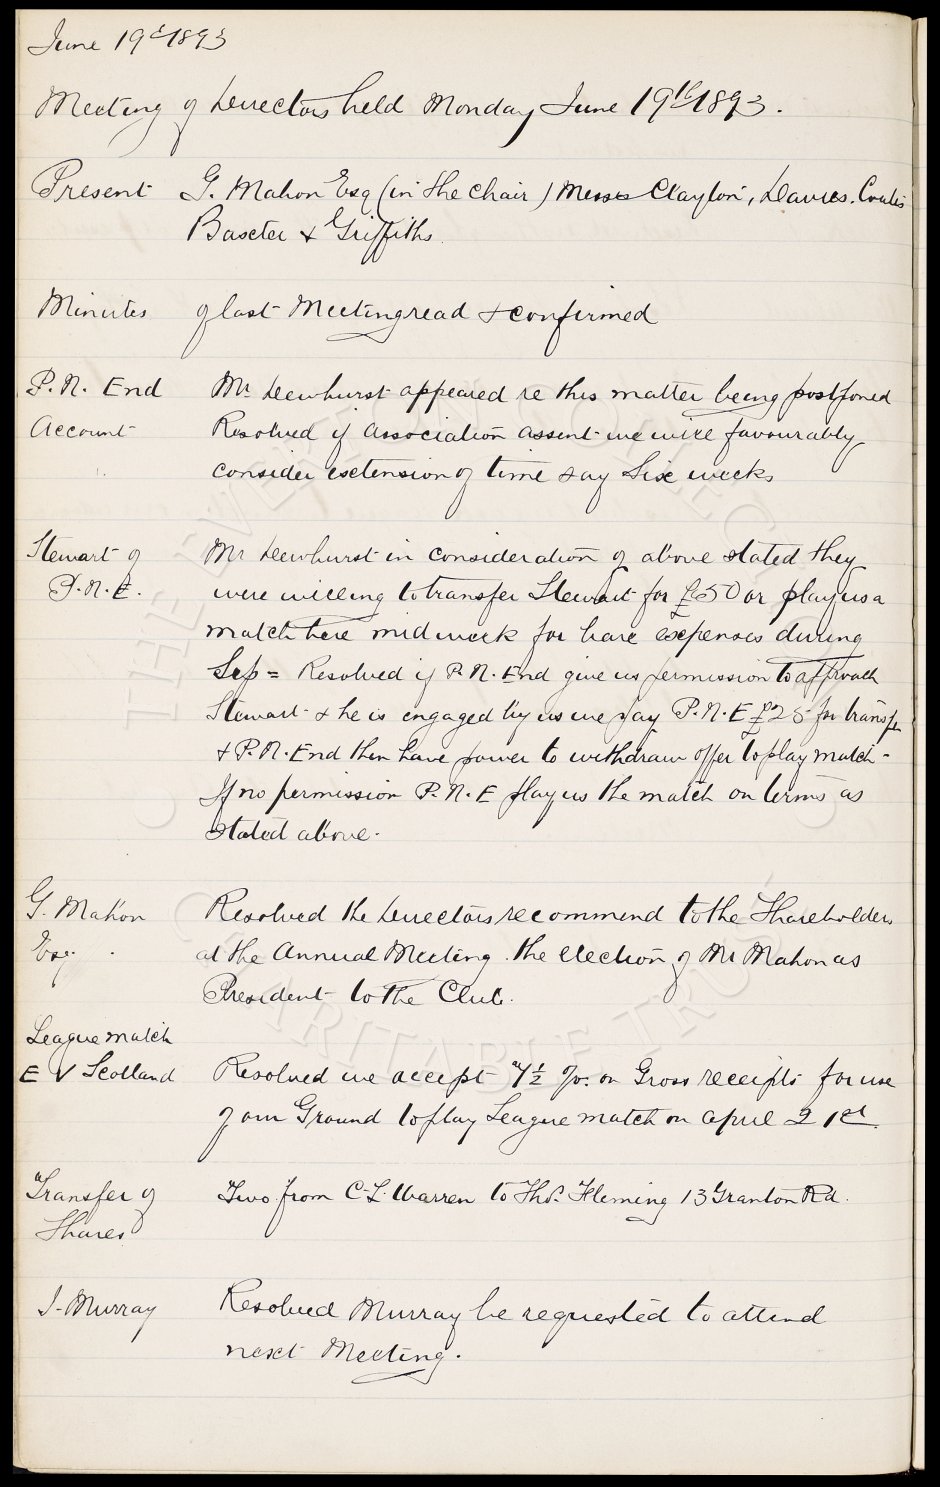 June 19th 1893
Meeting of Directors held Monday June 19th 1893.
Present G. Mahon Esq (in the chair) Messrs Clayton, Davies. Coates
Baxter & Griffiths.
Minutes of last Meeting read & confirmed
P.N. End Mr Dewhurst appeared re this matter being postponed
Account Resolved if Association assent we will favourably
consider extension of time say Six weeks
Stewart of Mr Dewhurst in consideration of above stated they
P.N.E. were willing to transfer Stewart for £50 or play us a
match here midweek for bare expenses during
Sep = Resolved if P.N. End give us permission to approach
Stewart & he is engaged by us we pay P.N.E £25 for transfer
& P.N. End then have power to withdraw offer to play match -
If no permission P.N.E play us the match on terms as
stated above.
G. Mahon Resolved the Directors recommend to the Shareholders
Esq. at the Annual Meeting the election of Mr Mahon as
President to the Club.
League match
E V Scotland Resolved we accept 7½ % on Gross receipts for use
of our Ground to play League match on April 21st.
Transfer of Two from C.L. Warren to Thos. Fleming 13 Granton Rd.
Shares
J. Murray Resolved Murray be requested to attend
next Meeting.
THE EVERTON COLLECTION
CHARITABLE TRUST